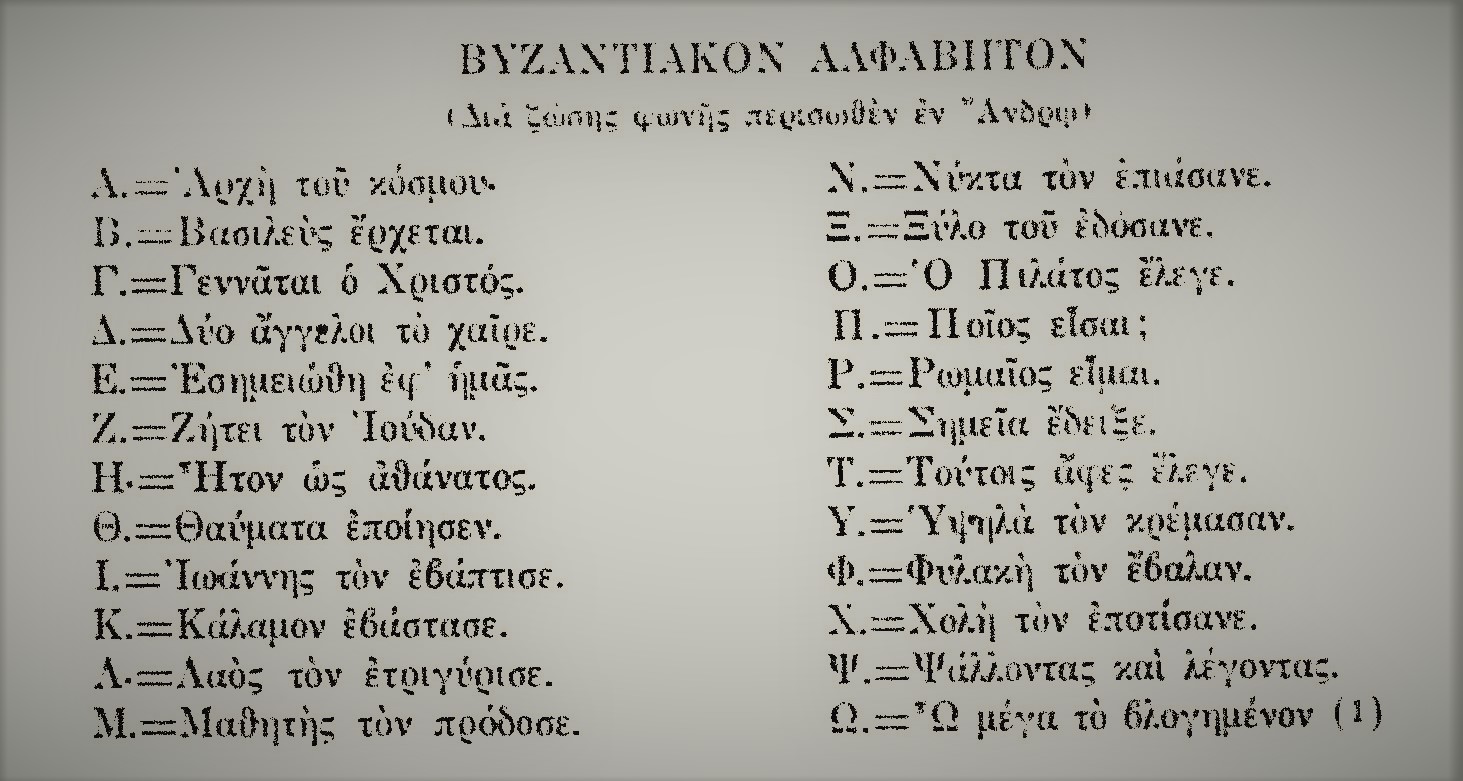 ΒΥΖΑΝΤΙΑΚΟΝ ΑΛΦΑΒΗΤΟΝ
(Διὰ ζώσης φωνῆς περισωθὲν ἐν Ἄνδρῳ)
Α.=Ἀρχὴ τοῦ κόσμου.
Β.=Βασιλεὺς ἔρχεται.
Γ.=Γεννᾶται ὁ Χριστός.
Δ.=Δύο ἄγγελοι τὸ χαῖρε.
Ε.=Ἐσημειώθη ἐφ' ἡμᾶς.
Ζ.=Ζήτει τὸν Ἰούδαν.
Η.=Ἦτον ὡς ἀθάνατος.
Θ.=Θαύματα ἐποίησεν.
Ι.=Ἰωάννης τὸν ἐβάπτισε.
Κ.=Κάλαμον ἐβάστασε.
Λ.=Λαὸς τὸν ἐτριγύρισε.
Μ.=Μαθητὴς τὸν πρόδοσε.
Ν.=Νύκτα τὸν ἐπιάσανε.
Ξ.=Ξύλο τοῦ ἐδόσανε.
Ο.=Ὁ Πιλάτος ἔλεγε.
Π.=Ποῖος εἶσαι;
Ρ.=Ρωμαῖος εἶμαι.
Σ.=Σημεῖα ἔδειξε.
Τ.=Τούτοις ἄφες ἔλεγε.
Υ.=Ὑψηλὰ τὸν κρέμασαν.
Φ.=Φυλακὴ τὸν ἔβαλαν.
Χ.=Χολὴ τὸν ἐποτίσανε.
Ψ.=Ψάλλοντας καὶ λέγοντας.
Ω.=Ὦ μέγα τὸ βλογημένον (1)